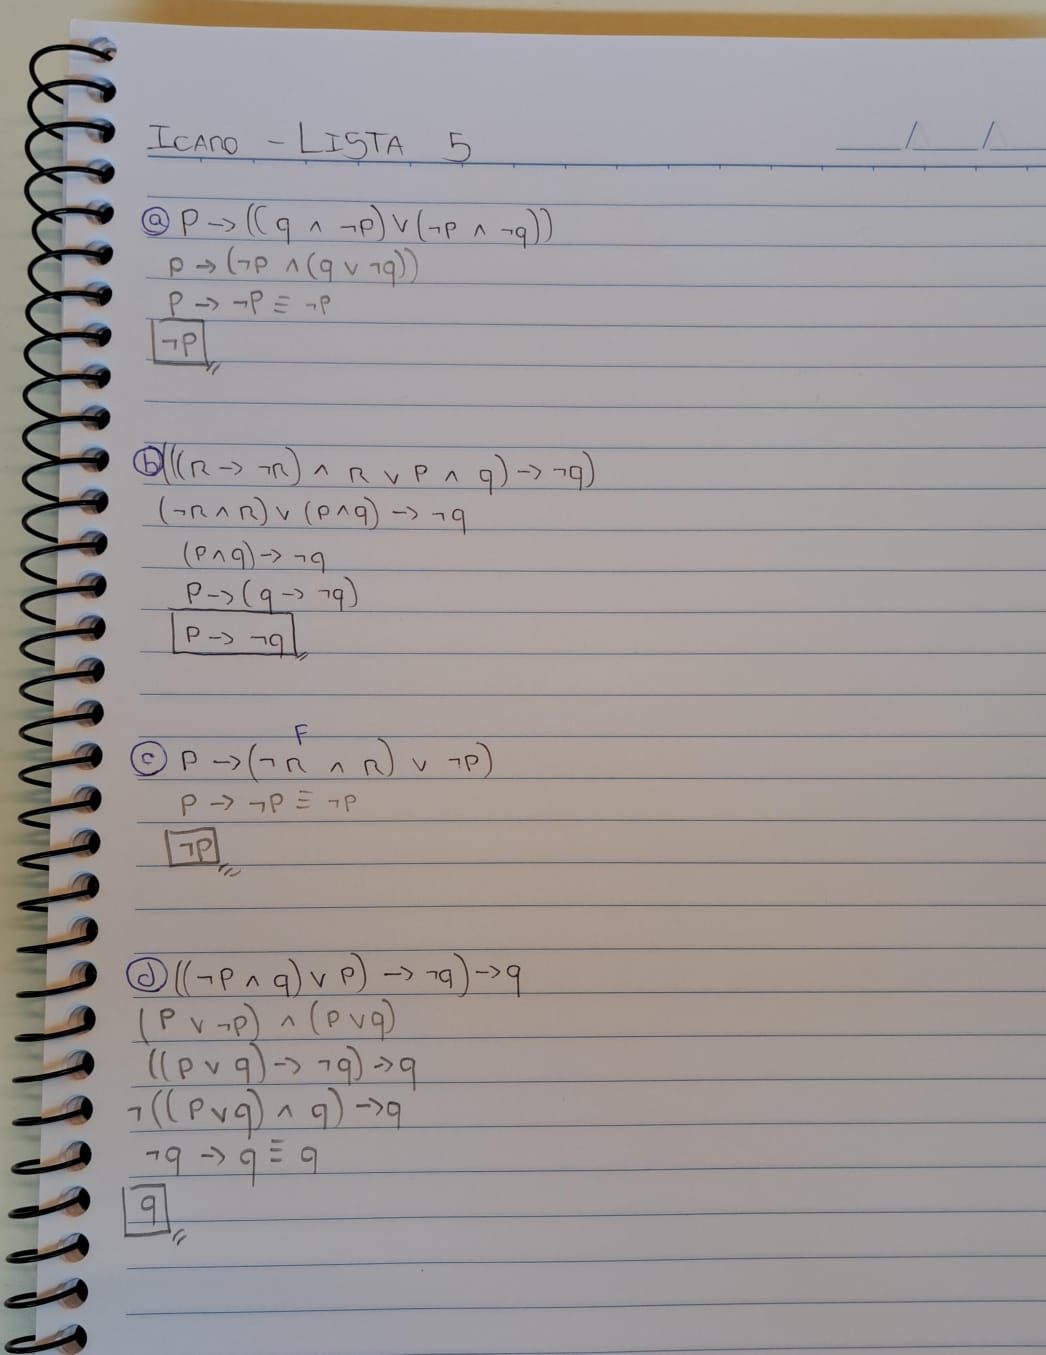 ICARO - LISTA 5 __/__/__
ⓐ P → ((q ∧ ¬P) ∨ (¬P ∧ ¬q))
P → (¬P ∧ (q ∨ ¬q))
P → ¬P ≡ ¬P
¬P
ⓑ (((R → ¬R) ∧ R ∨ P ∧ q) → ¬q)
(¬R ∧ R) ∨ (P ∧ q) → ¬q
(P ∧ q) → ¬q
P → (q → ¬q)
P → ¬q
F
ⓒ P → (¬R ∧ R) ∨ ¬P)
P → ¬P ≡ ¬P
¬P
ⓓ ((¬P ∧ q) ∨ P) → ¬q) → q
(P ∨ ¬P) ∧ (P ∨ q)
((P ∨ q) → ¬q) → q
¬((P ∨ q) ∧ q) → q
¬q → q ≡ q
q